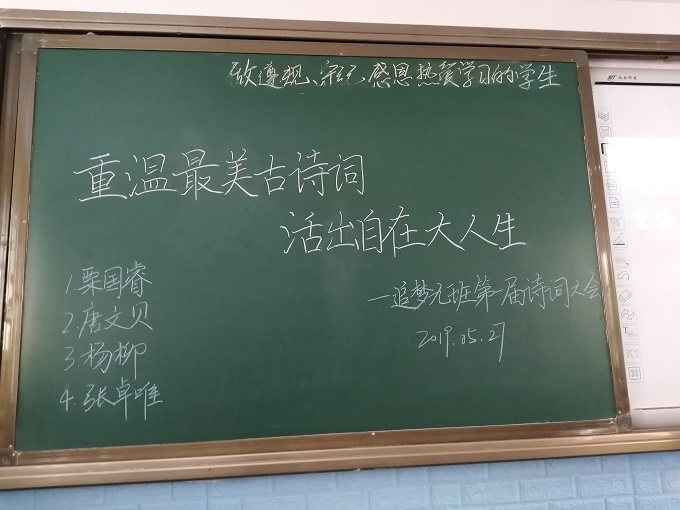 做遵规、守纪、感恩热爱学习的学生
重温最美古诗词
活出自在大人生
—追梦九班第一届诗词大会
2019.05.27
1.栗国睿
2.唐文贝
3.杨柳
4.张卓唯
K1